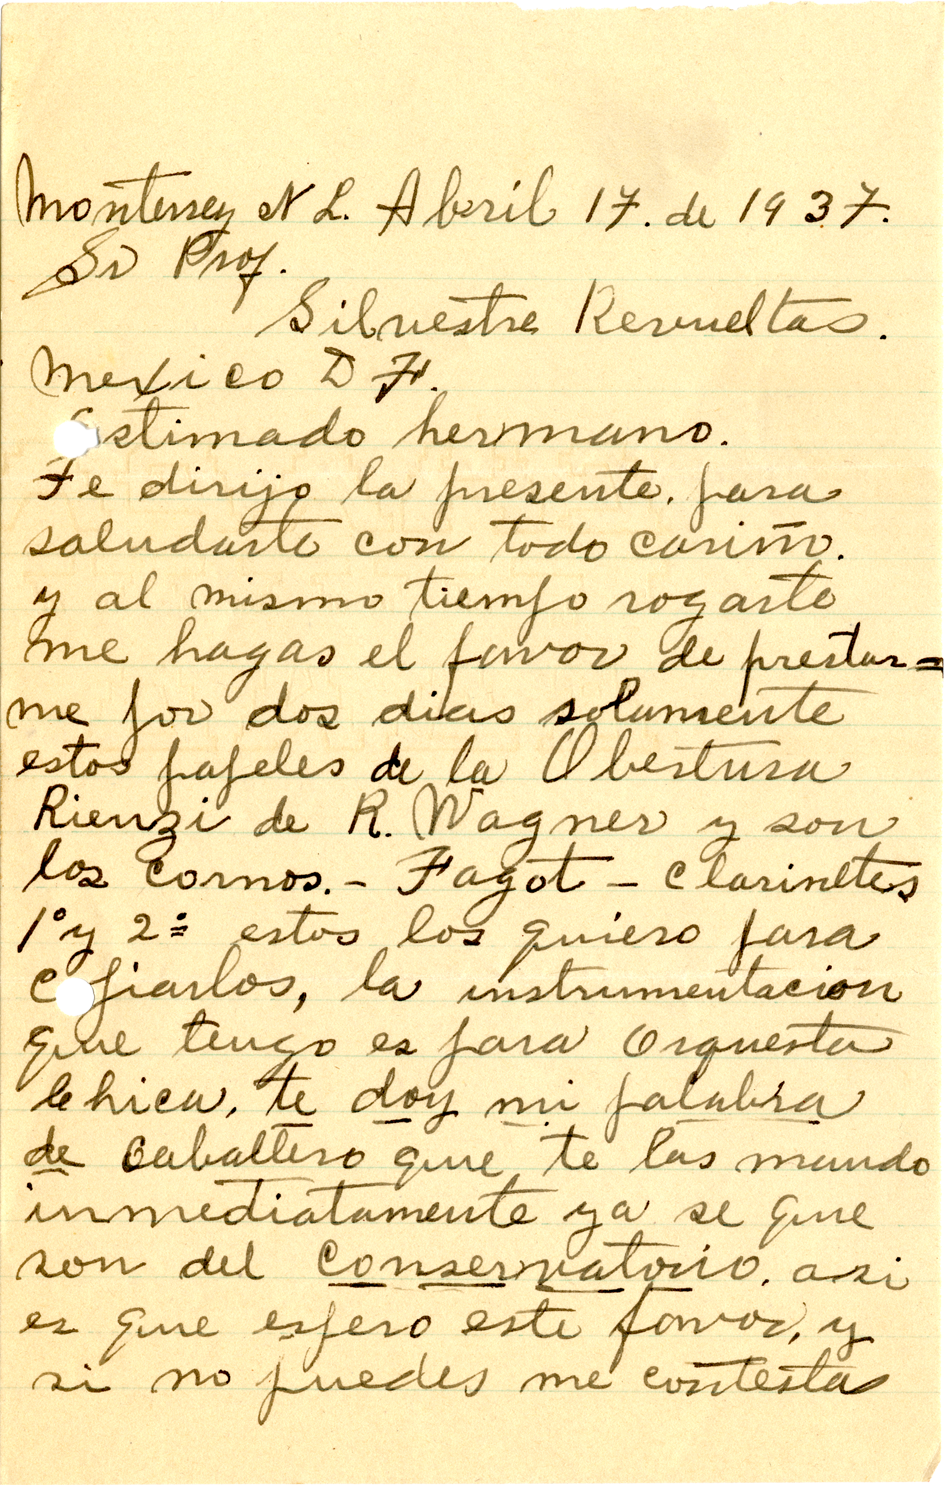 Monterrey N L. Abril 17. de 1937.
Sr Prof.
Silvestre Revueltas.
Mexico D F.
Estimado hermano.
Te dirijo la presente. para
saludarte con todo cariño.
y al mismo tiempo rogarte
me hagas el favor de prestar=
me por dos dias solamente
estos papeles de la Obertura
Rienzi de R. Wagner y son
los Cornos. - Fagot - Clarinetes
1º y 2º estos los quiero para
copiarlos, la instrumentacion
que tengo es para Orquesta
Chica, te doy mi palabra
de Caballero que te las mando
inmediatamente ya se que
son del Conservatorio. asi
es que espero este favor, y
si no puedes me contestas